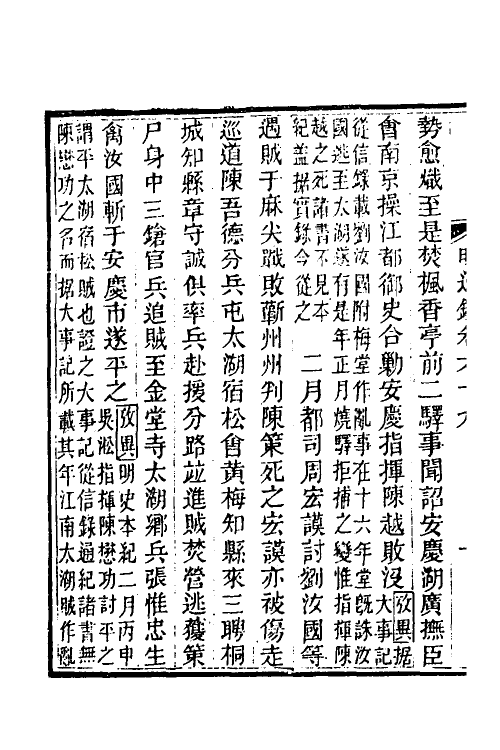 勢愈熾至是焚楓香亭前二驛事聞詔安慶湖廣撫臣
會南京操江都御史合勦安慶指揮陳越敗沒攷異据大事記
從信錄載劉汝國附梅堂作亂事在十六年堂旣誅汝
國逃至太湖遂有是年正月燒驛拒捕之變惟指揮陳
越之死諸書不見本
紀蓋据實錄今從之
二月都司周宏謨討劉汝國等
遇賊于麻尖戰敗蘄州州判陳策死之宏謨亦被傷走
巡道陳吾德分兵屯太湖宿松會黃梅知縣來三聘桐
城知縣章守誠俱率兵赴援分路竝進賊焚營逃獲策
尸身中三鎗官兵追賊至金堂寺太湖鄉兵張惟忠生
禽汝國斬于安慶市遂平之攷異明史本紀二月丙申
吳淞指揮陳懋功討平之
謂平太湖宿松賊也證之大事記從信錄通紀諸書無
陳懋功之名而据大事記所載其年江南太湖賊作亂
明通鑑卷六十九